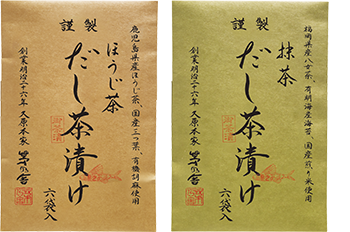 謹製
鹿児島県産ほうじ茶、国産三つ葉、有機胡麻使用
ほうじ茶
だし茶漬け
六袋入
創業明治二十六年 久原本家 茅乃舎
謹製
福岡県産八女茶、有明海産海苔、国産煎り米使用
抹茶
だし茶漬け
六袋入
創業明治二十六年 久原本家 茅乃舎